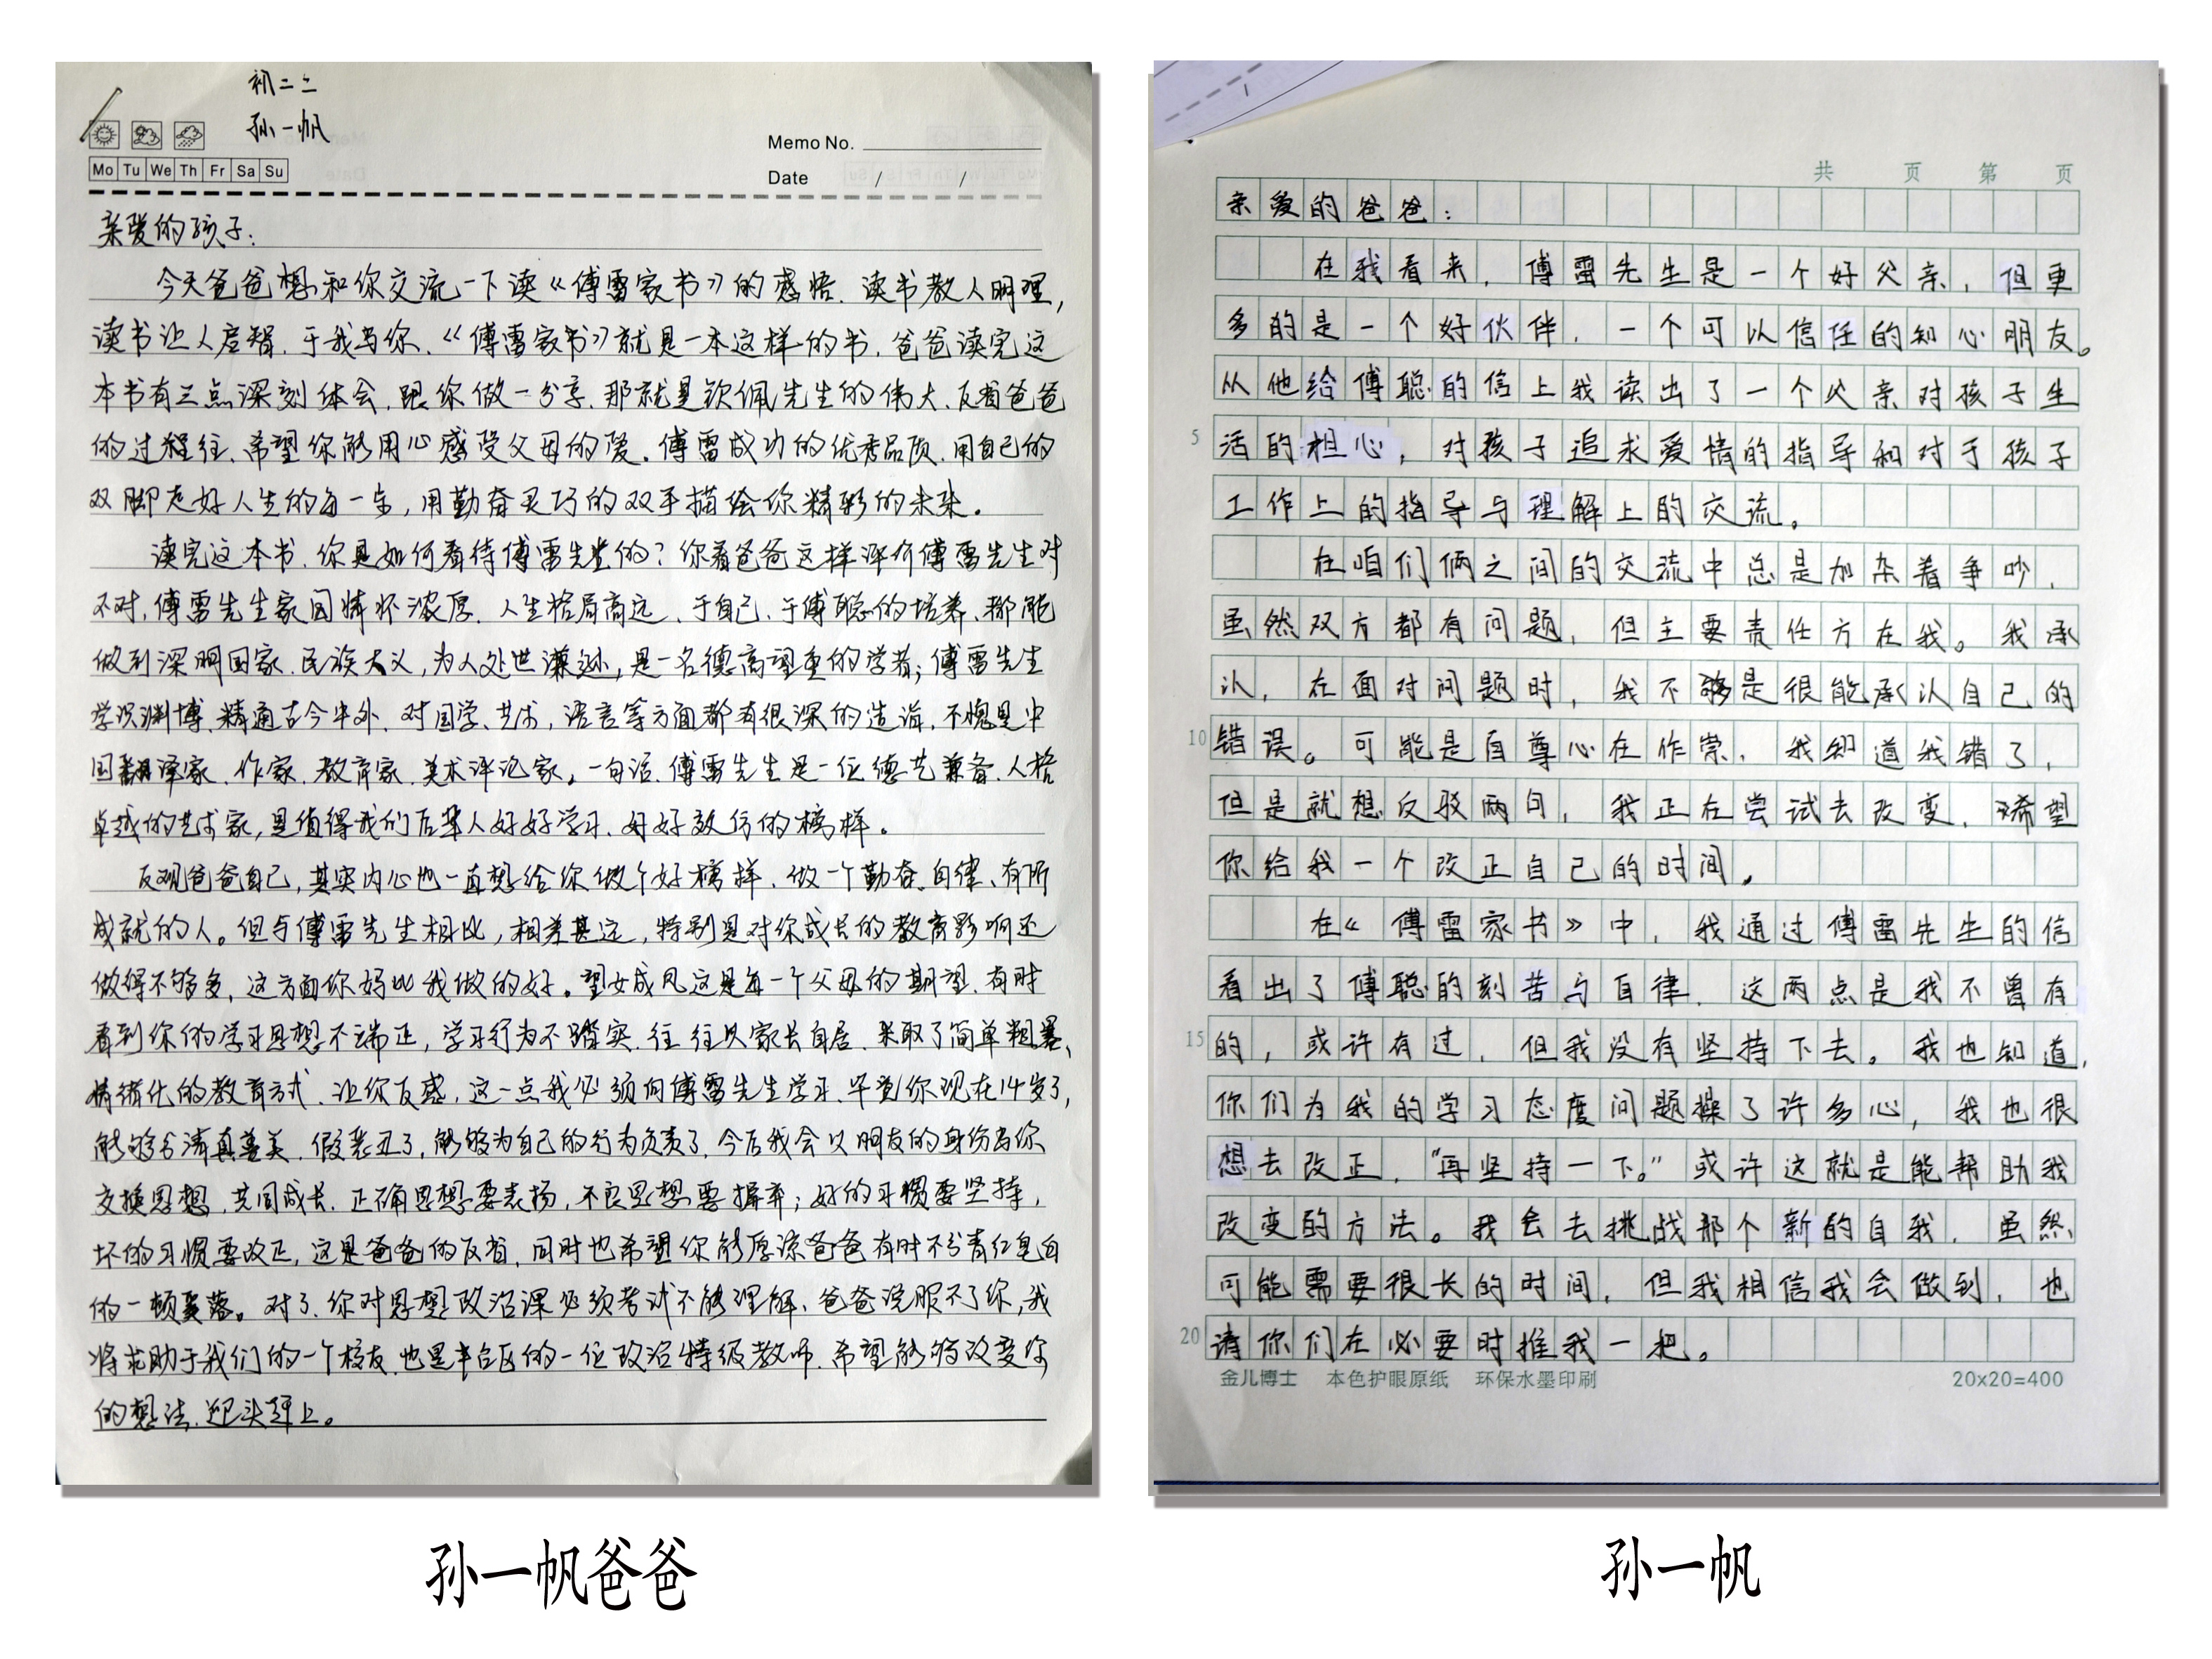 初二二
孙一帆
Mo Tu We Th Fr Sa Su
Memo No.
Date / /
亲爱的孩子:
今天爸爸想和你交流一下读《傅雷家书》的感悟.读书教人明理,
读书让人启智.于我与你、《傅雷家书》就是一本这样的书.爸爸读完这
本书有三点深刻体会.跟你做一分享.那就是钦佩先生的伟大、反省爸爸
的过程往、希望你能用心感受父母的爱。傅雷成功的优秀品质.用自己的
双脚走好人生的每一步,用勤奋灵巧的双手描绘你精彩的未来。
读完这本书.你是如何看待傅雷先生的?你看爸爸这样评价傅雷先生对
不对,傅雷先生家国情怀浓厚、人生格局高远、于自己、于傅聪的培养、都能
做到深明国家.民族大义,为人处世谦逊,是一名德高望重的学者;傅雷先生
学识渊博.精通古今中外.对国学、艺术,语言等方面都有很深的造诣.不愧是中
国翻译家、作家、教育家、美术评论家。一句话.傅雷先生是一位德艺兼备、人格
卓越的艺术家,是值得我们后辈人好好学习、好好效仿的榜样。
反观爸爸自己,其实内心也一直想给你做个好榜样、做一个勤奋、自律、有所
成就的人。但与傅雷先生相比,相差甚远,特别是对你成长的教育影响还
做得不够多,这方面你妈比我做的好。望女成凤这是每一个父母的期望.有时
看到你的学习思想不端正,学习行为不踏实.往往以家长自居.采取了简单粗暴、
情绪化的教育方式、让你反感,这一点我必须向傅雷先生学习.毕竟你现在14岁了,
能够分清真善美、假恶丑了,能够为自己的行为负责了.今后我会以朋友的身份与你
交换思想,共同成长.正确思想要表扬,不良思想要摒弃;好的习惯要坚持,
坏的习惯要改正,这是爸爸的反省.同时也希望你能原谅爸爸有时不分青红皂白
的一顿数落。对了.你对思想政治课必须考试不能理解、爸爸说服不了你,我
将求助于我们的一个校友.也是丰台区的一位政治特级教师.希望能够改变你
的想法.迎头赶上。
孙一帆爸爸
共 页 第 页
亲爱的爸爸:
在我看来,傅雷先生是一个好父亲,但更
多的是一个好伙伴,一个可以信任的知心朋友。
从他给傅聪的信上我读出了一个父亲对孩子生
5 活的担心,对孩子追求爱情的指导和对于孩子
工作上的指导与理解上的交流。
在咱们俩之间的交流中总是加杂着争吵,
虽然双方都有问题,但主要责任方在我。我承
认,在面对问题时,我不是很能承认自己的
10 错误。可能是自尊心在作祟,我知道我错了,
但是就想反驳两句,我正在尝试去改变,希望
你给我一个改正自己的时间。
在《傅雷家书》中,我通过傅雷先生的信
看出了傅聪的刻苦与自律,这两点是我不曾有
15 的,或许有过,但我没有坚持下去。我也知道,
你们为我的学习态度问题操了许多心,我也很
想去改正,“再坚持一下。”或许这就是能帮助我
改变的方法。我会去挑战那个新的自我,虽然
可能需要很长的时间,但我相信我会做到,也
20 请你们在必要时推我一把。
金儿博士 本色护眼原纸 环保水墨印刷 20x20=400
孙一帆